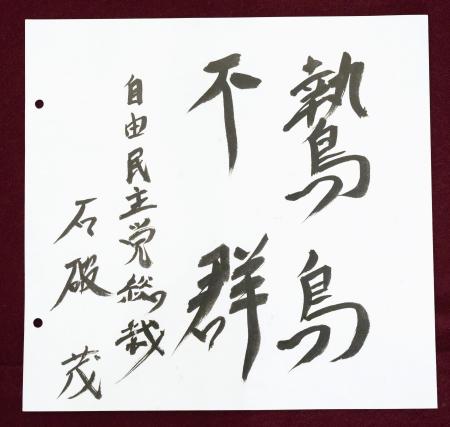 鷙鳥
不群
自由民主党総裁
石破茂